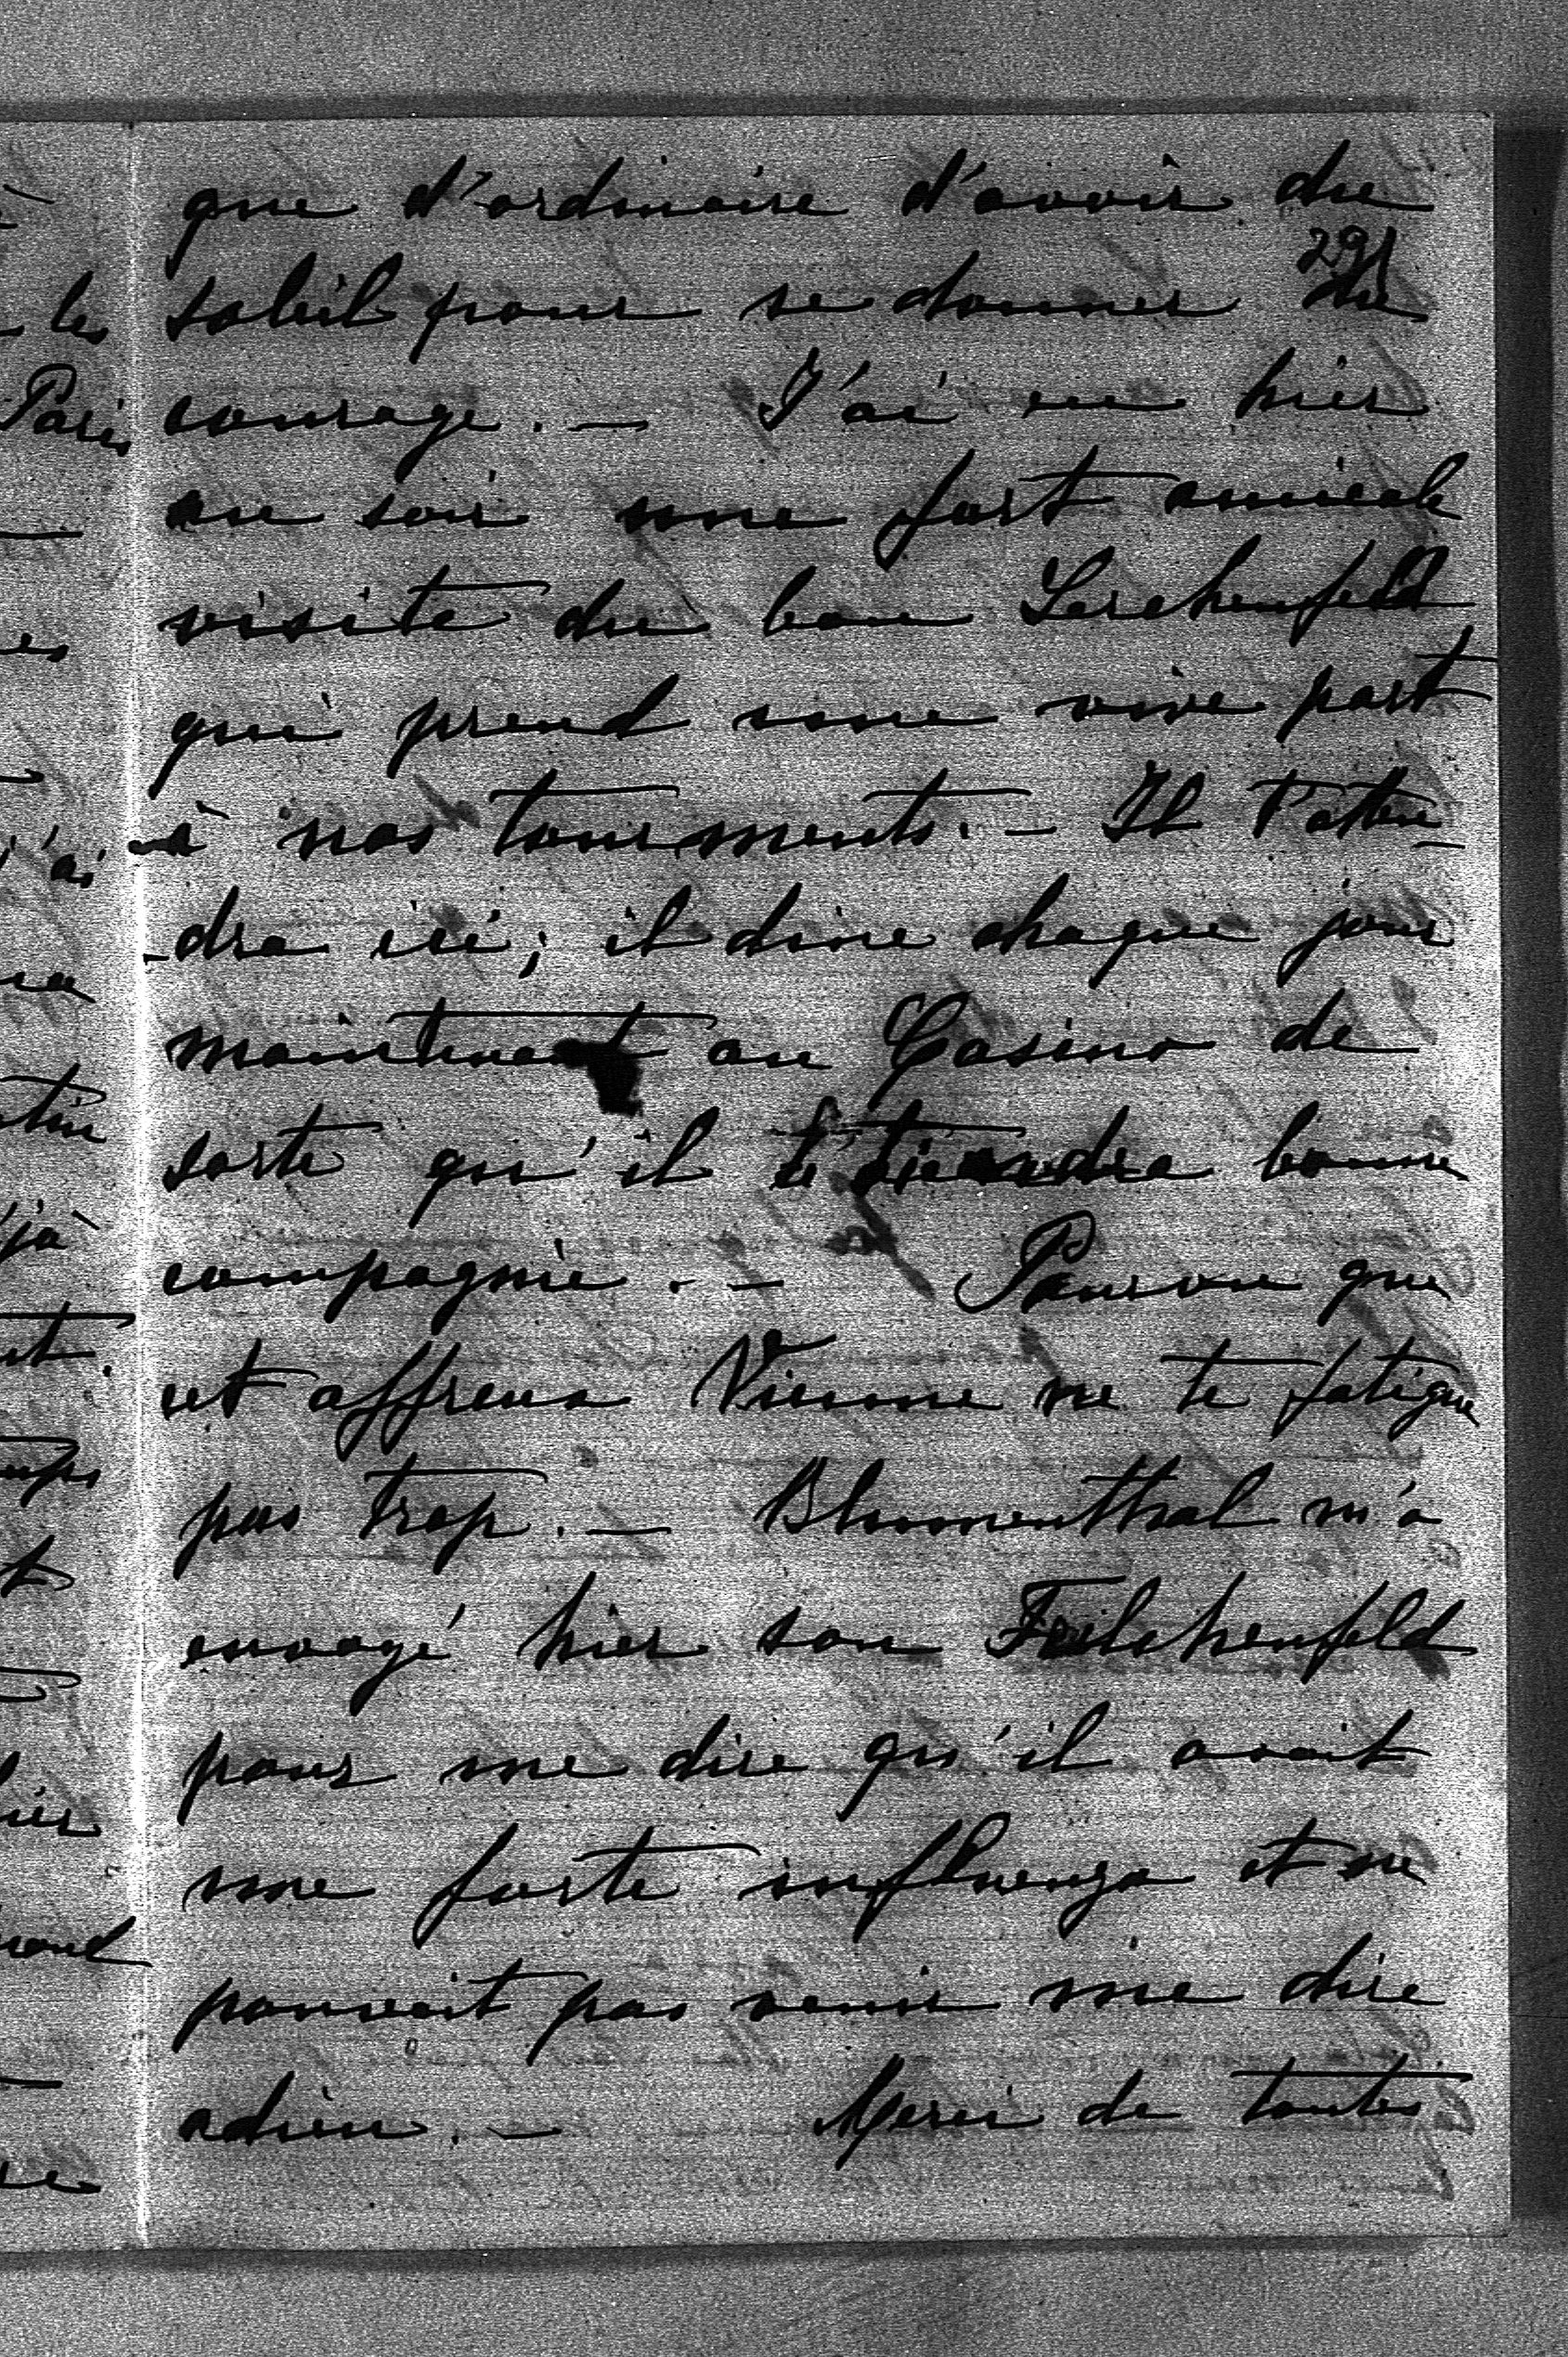 que d'ordinaire d'avoir du
29
soleil pour se donner du
courage. — J'ai eu hier
au soir une fort amicale
visite du bon Lerchenfeld,
qui prend une vive part
à nos tourments. — Il t'atten-
dra ici; il dine chaque jour
maintenant au Casino de
sorte qu'il te tiendra bonne
compagnie. — Pourvu que
cet affreux Vienne ne te fatigue
pas trop. — Blumenthal m'a
envoyé hier son Feilchenfeld
pour me dire qu'il avait
une forte influenza et ne
pouvait pas venir me dire
adieu. — Merci de toutes